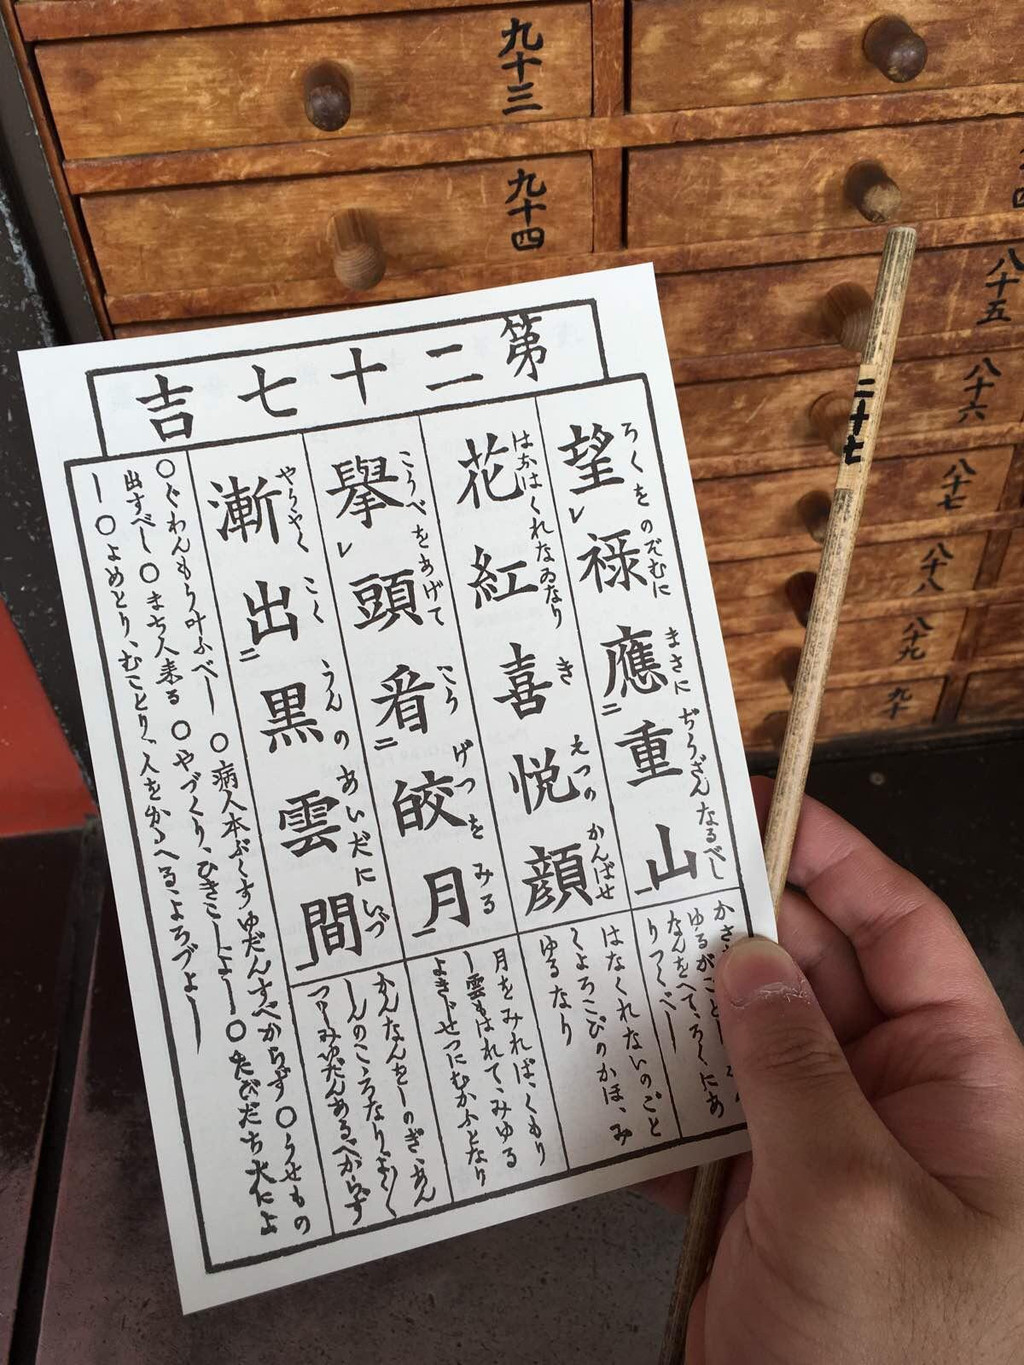 九十三
九十四
八十五
八十六
八十七
八十八
八十九
九十
二十七
第二十七吉
望㆑祿應㆓重山㆒
ろくをのぞむに まさに ぢうざんなるべし
ゆるがごとし
なんをへて、ろくにあ
りつくべし
花紅喜悦顔
はなはくれなゐなり きえつの かんばせ
はなくれないのごと
くよろこびのかほ、み
ゆるなり
擧㆑頭看㆓皎月㆒
こうべをあげて こうげつを みる
月をみれば、くもり
し雲もはれて、みゆる
よきじせつにむかふとなり
漸出㆓黒雲間㆒
やうやく こくうんのあいだにいづ
かんなんをしのぎ、あん
しんのこころなりよくよく
つつしみゆだんあるべからず
○ぐわんもう叶ふべし ○病人本ぶくすゆだんすべからず○うせもの
出すべし○まち人来る ○やづくり、ひきこしよし○たびだち大によ
し○よめとり、むことり、人をかゝへる、よろづよし